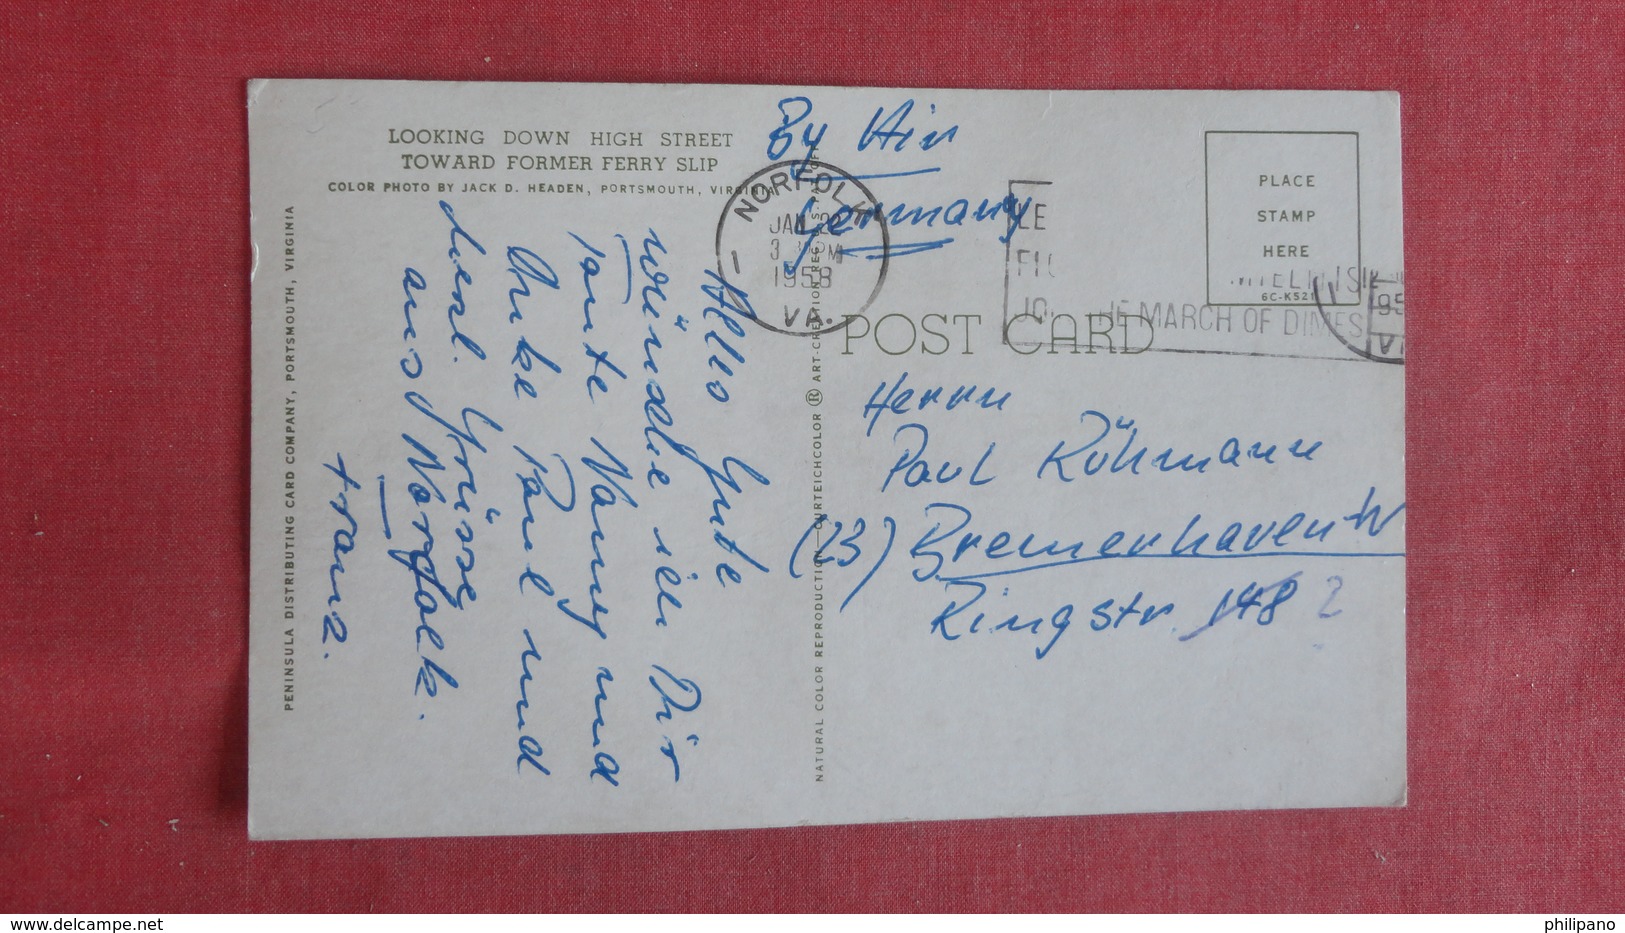 LOOKING DOWN HIGH STREET
TOWARD FORMER FERRY SLIP
COLOR PHOTO BY JACK D. HEADEN, PORTSMOUTH, VIRGINIA
PENINSULA DISTRIBUTING CARD COMPANY, PORTSMOUTH, VIRGINIA
Hallo Gute
Wünsche ich Dir
Tante Nanny und
Onke Paul und
herzl. Grüsse
aus Norfolk.
Franz.
NATURAL COLOR REPRODUCTION CURTEICHCOLOR ® ART-CREATION REG. U.S. PAT. OFF.
By Air
Germany
NORFOLK
JAN 22
3 PM
1958
VA.
MARCH OF DIMES
PLACE
STAMP
HERE
6C-K521
POST CARD
Herrn
Paul Rühmann
(23) Bremerhaven-W
Ringstr. 148 2
delcampe.net
philipano